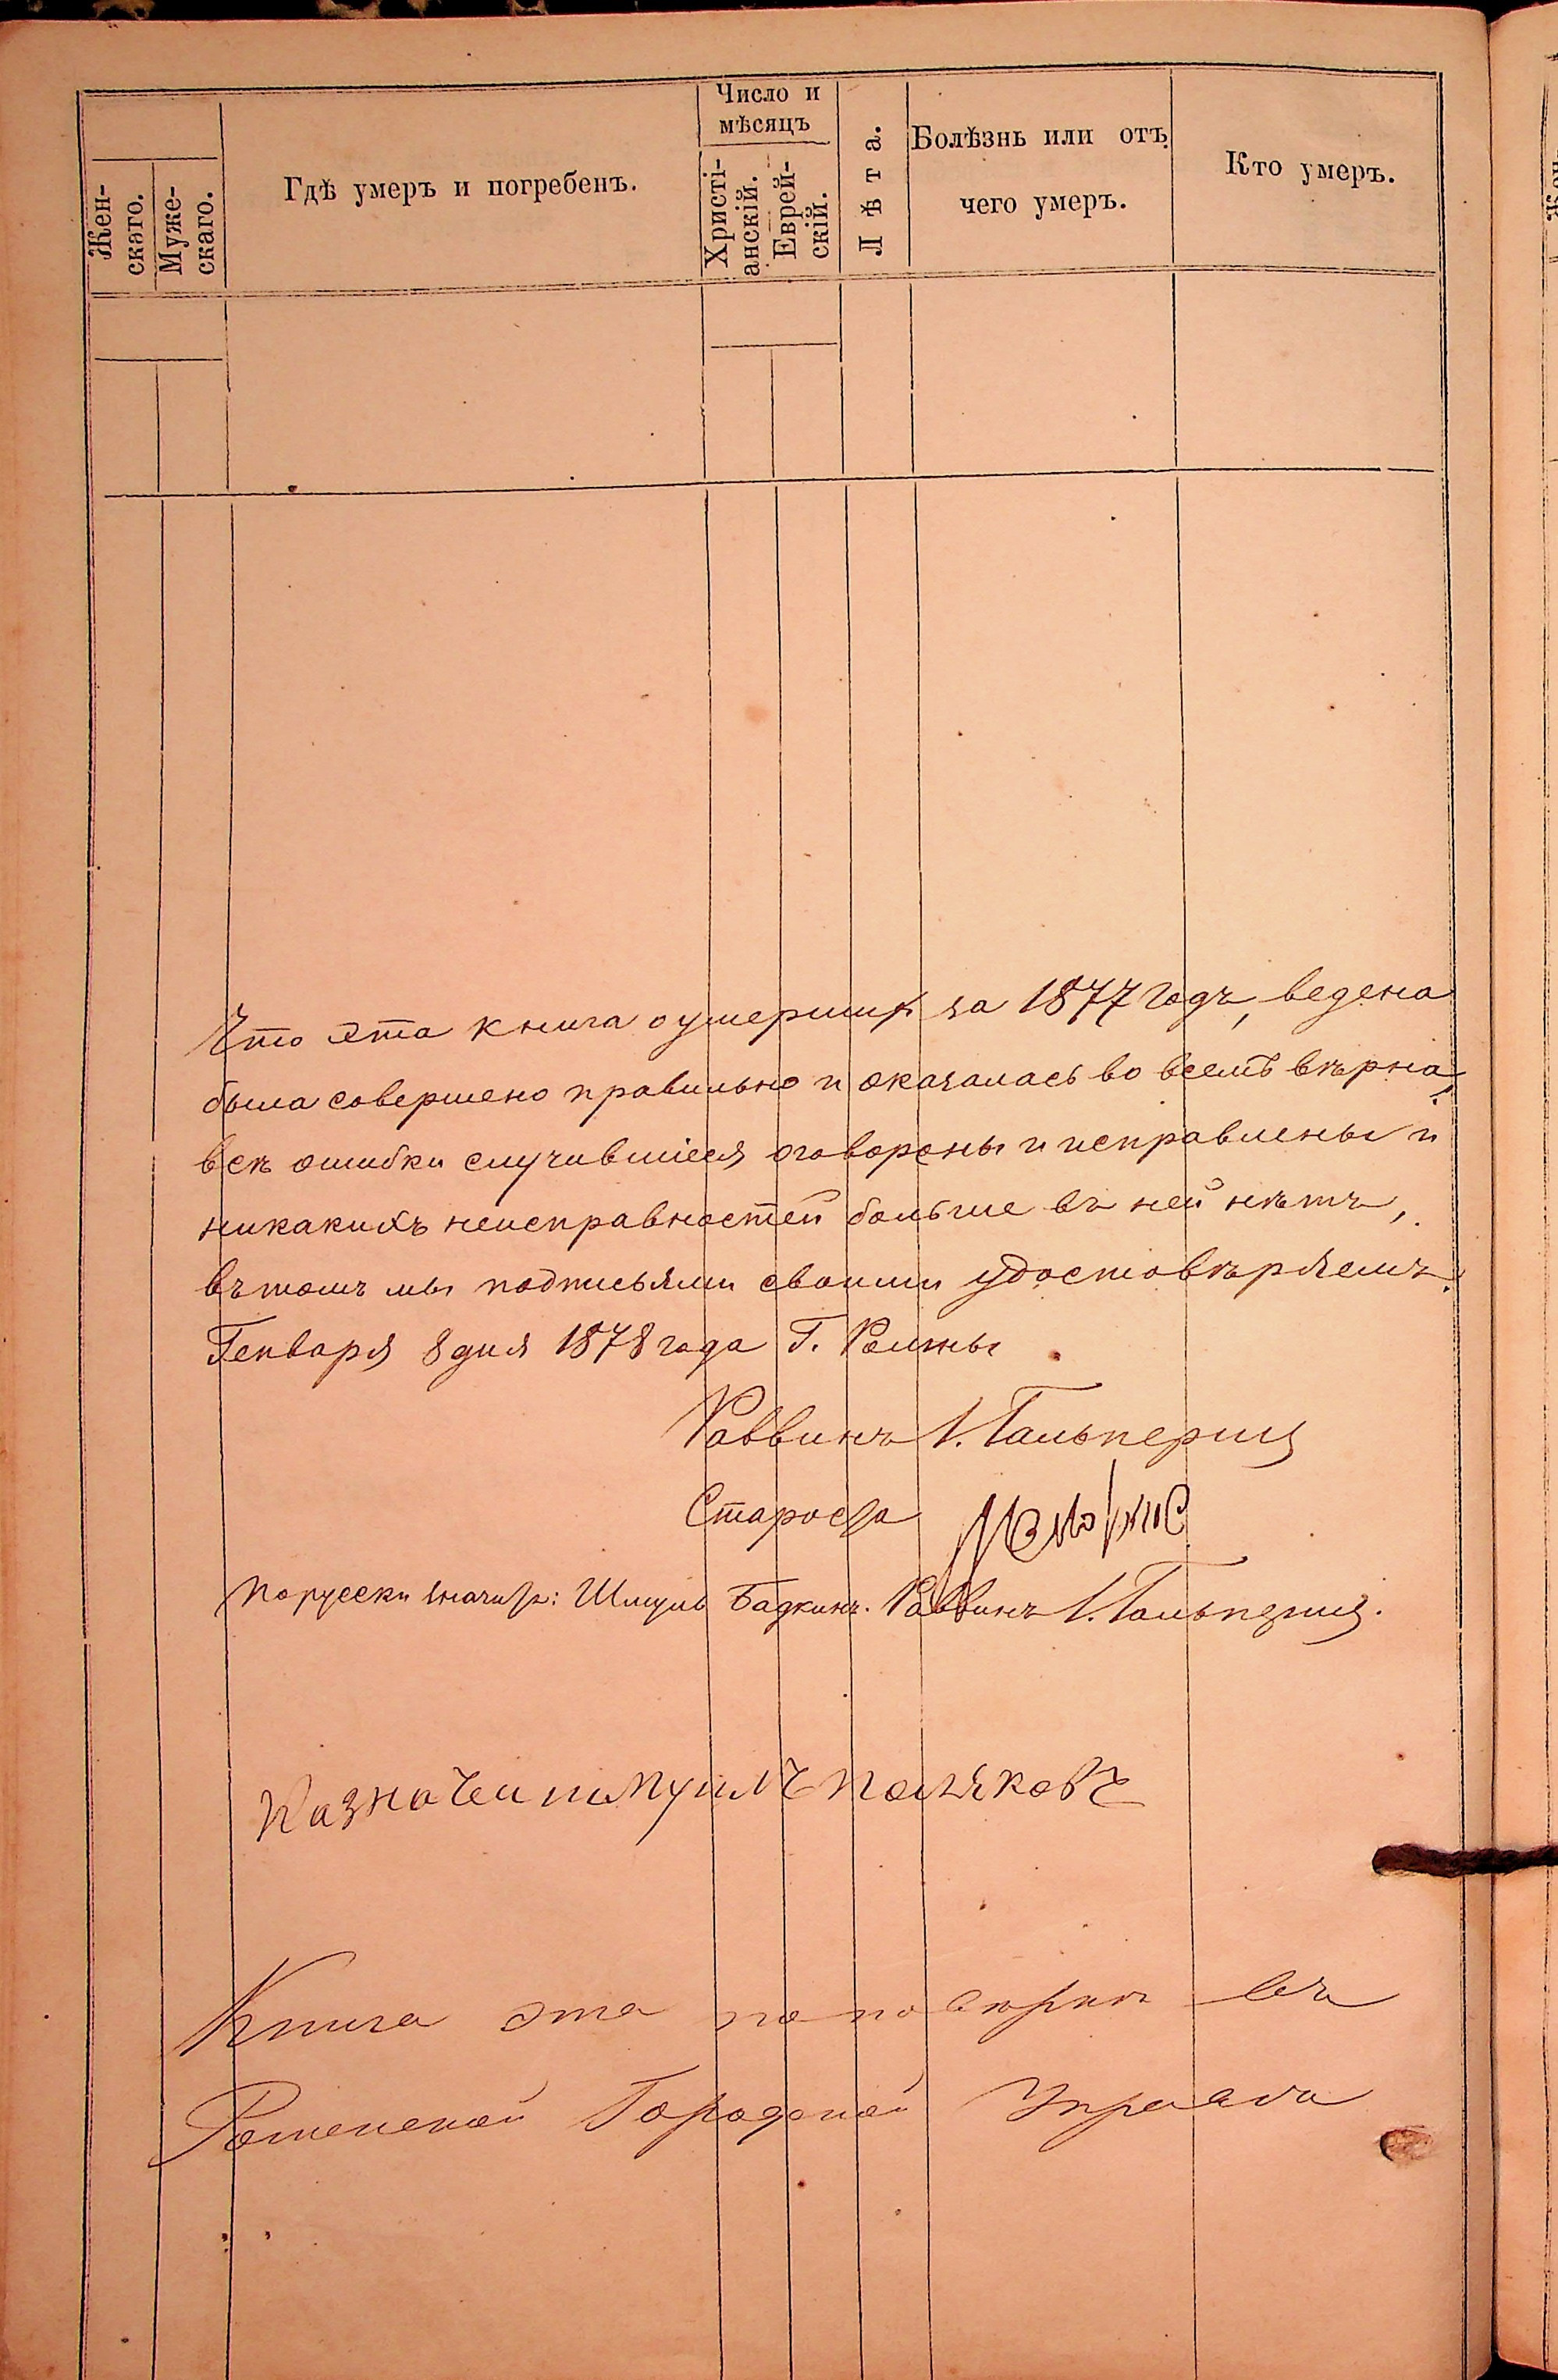 Число и
мѣсяцъ
Жен-
скаго.
Муже-
скаго.
Гдѣ умеръ и погребенъ.
Христі-
анскій.
Еврей-
скій.
Лѣта.
Болѣзнь или отъ
чего умеръ.
Кто умеръ.
Что эта книга о умершихъ за 1877 годъ, ведена
была совершено правильно и оказалась во всемъ вѣрна,
всѣ ошибки случившіеся оговорены и исправлены и
никакихъ неисправностей больше въ ней нѣтъ,
въ томъ мы подписьями своими удостовѣряемъ.
Генваря 8 дня 1878 года Г. Ромны
Раввинъ І. Гальперинъ
Староста
По русски значитъ: Шмуль Бадкинъ. Раввинъ І. Гальперинъ.
Казначеи шмуилъ поляковъ
Книга эта по повѣркѣ въ
Роменской Городской Управѣ